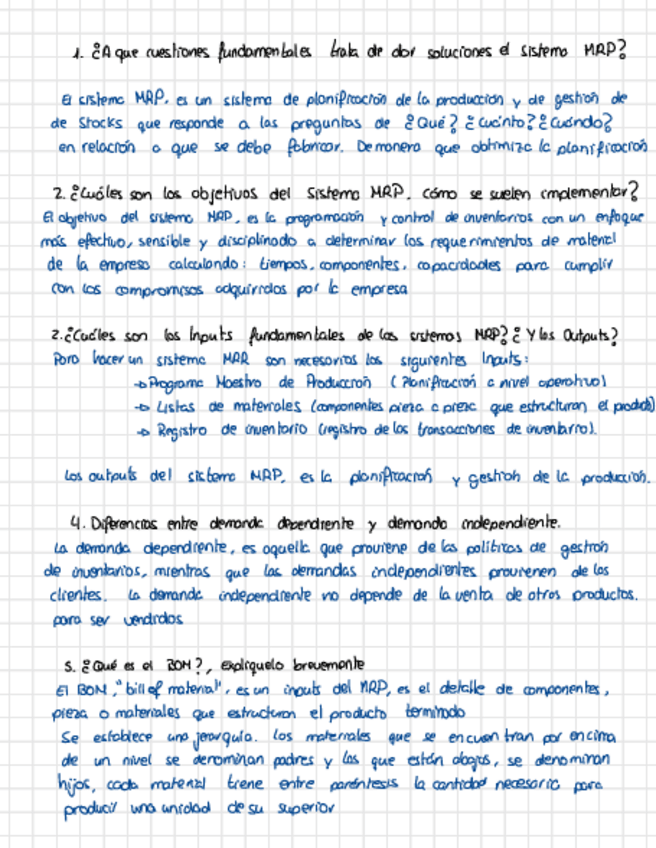 1. ¿A que cuestiones fundamentales trata de dar soluciones el sistema MRP?
El sistema MRP, es un sistema de planificación de la producción y de gestión de
de stocks que responde a las preguntas de ¿Qué? ¿Cuánto? ¿Cuándo?
en relación a que se debe fabricar. De manera que optimiza la planificación
2. ¿Cuáles son los objetivos del sistema MRP, cómo se suelen implementar?
El objetivo del sistema MRP, es la programación y control de inventarios con un enfoque
más efectivo, sensible y disciplinado a determinar los requerimientos de material
de la empresa calculando: tiempos, componentes, capacidades para cumplir
con los compromisos adquiridos por la empresa
2. ¿Cuáles son los Inputs fundamentales de los sistemas MRP? ¿Y los Outputs?
Para hacer un sistema MRP son necesarios los siguientes Inputs:
→ Programa Maestro de Producción (Planificación a nivel operativo)
→ Listas de materiales (componentes pieza a pieza que estructuran el producto)
→ Registro de inventario (registro de las transacciones de inventario).
Los outputs del sistema MRP, es la planificación y gestión de la producción.
4. Diferencias entre demanda dependiente y demanda independiente.
La demanda dependiente, es aquella que proviene de las políticas de gestión
de inventarios, mientras que las demandas independientes provienen de los
clientes. La demanda independiente no depende de la venta de otros productos.
para ser vendidos
5. ¿Qué es el BOM?, explíquelo brevemente
El BOM, "bill of material", es un inputs del MRP, es el detalle de componentes,
pieza o materiales que estructuran el producto terminado
Se establece una jerarquía. Los materiales que se encuentran por encima
de un nivel se denominan padres y los que están abajos, se denominan
hijos, cada material tiene entre paréntesis la cantidad necesaria para
producir una unidad de su superior